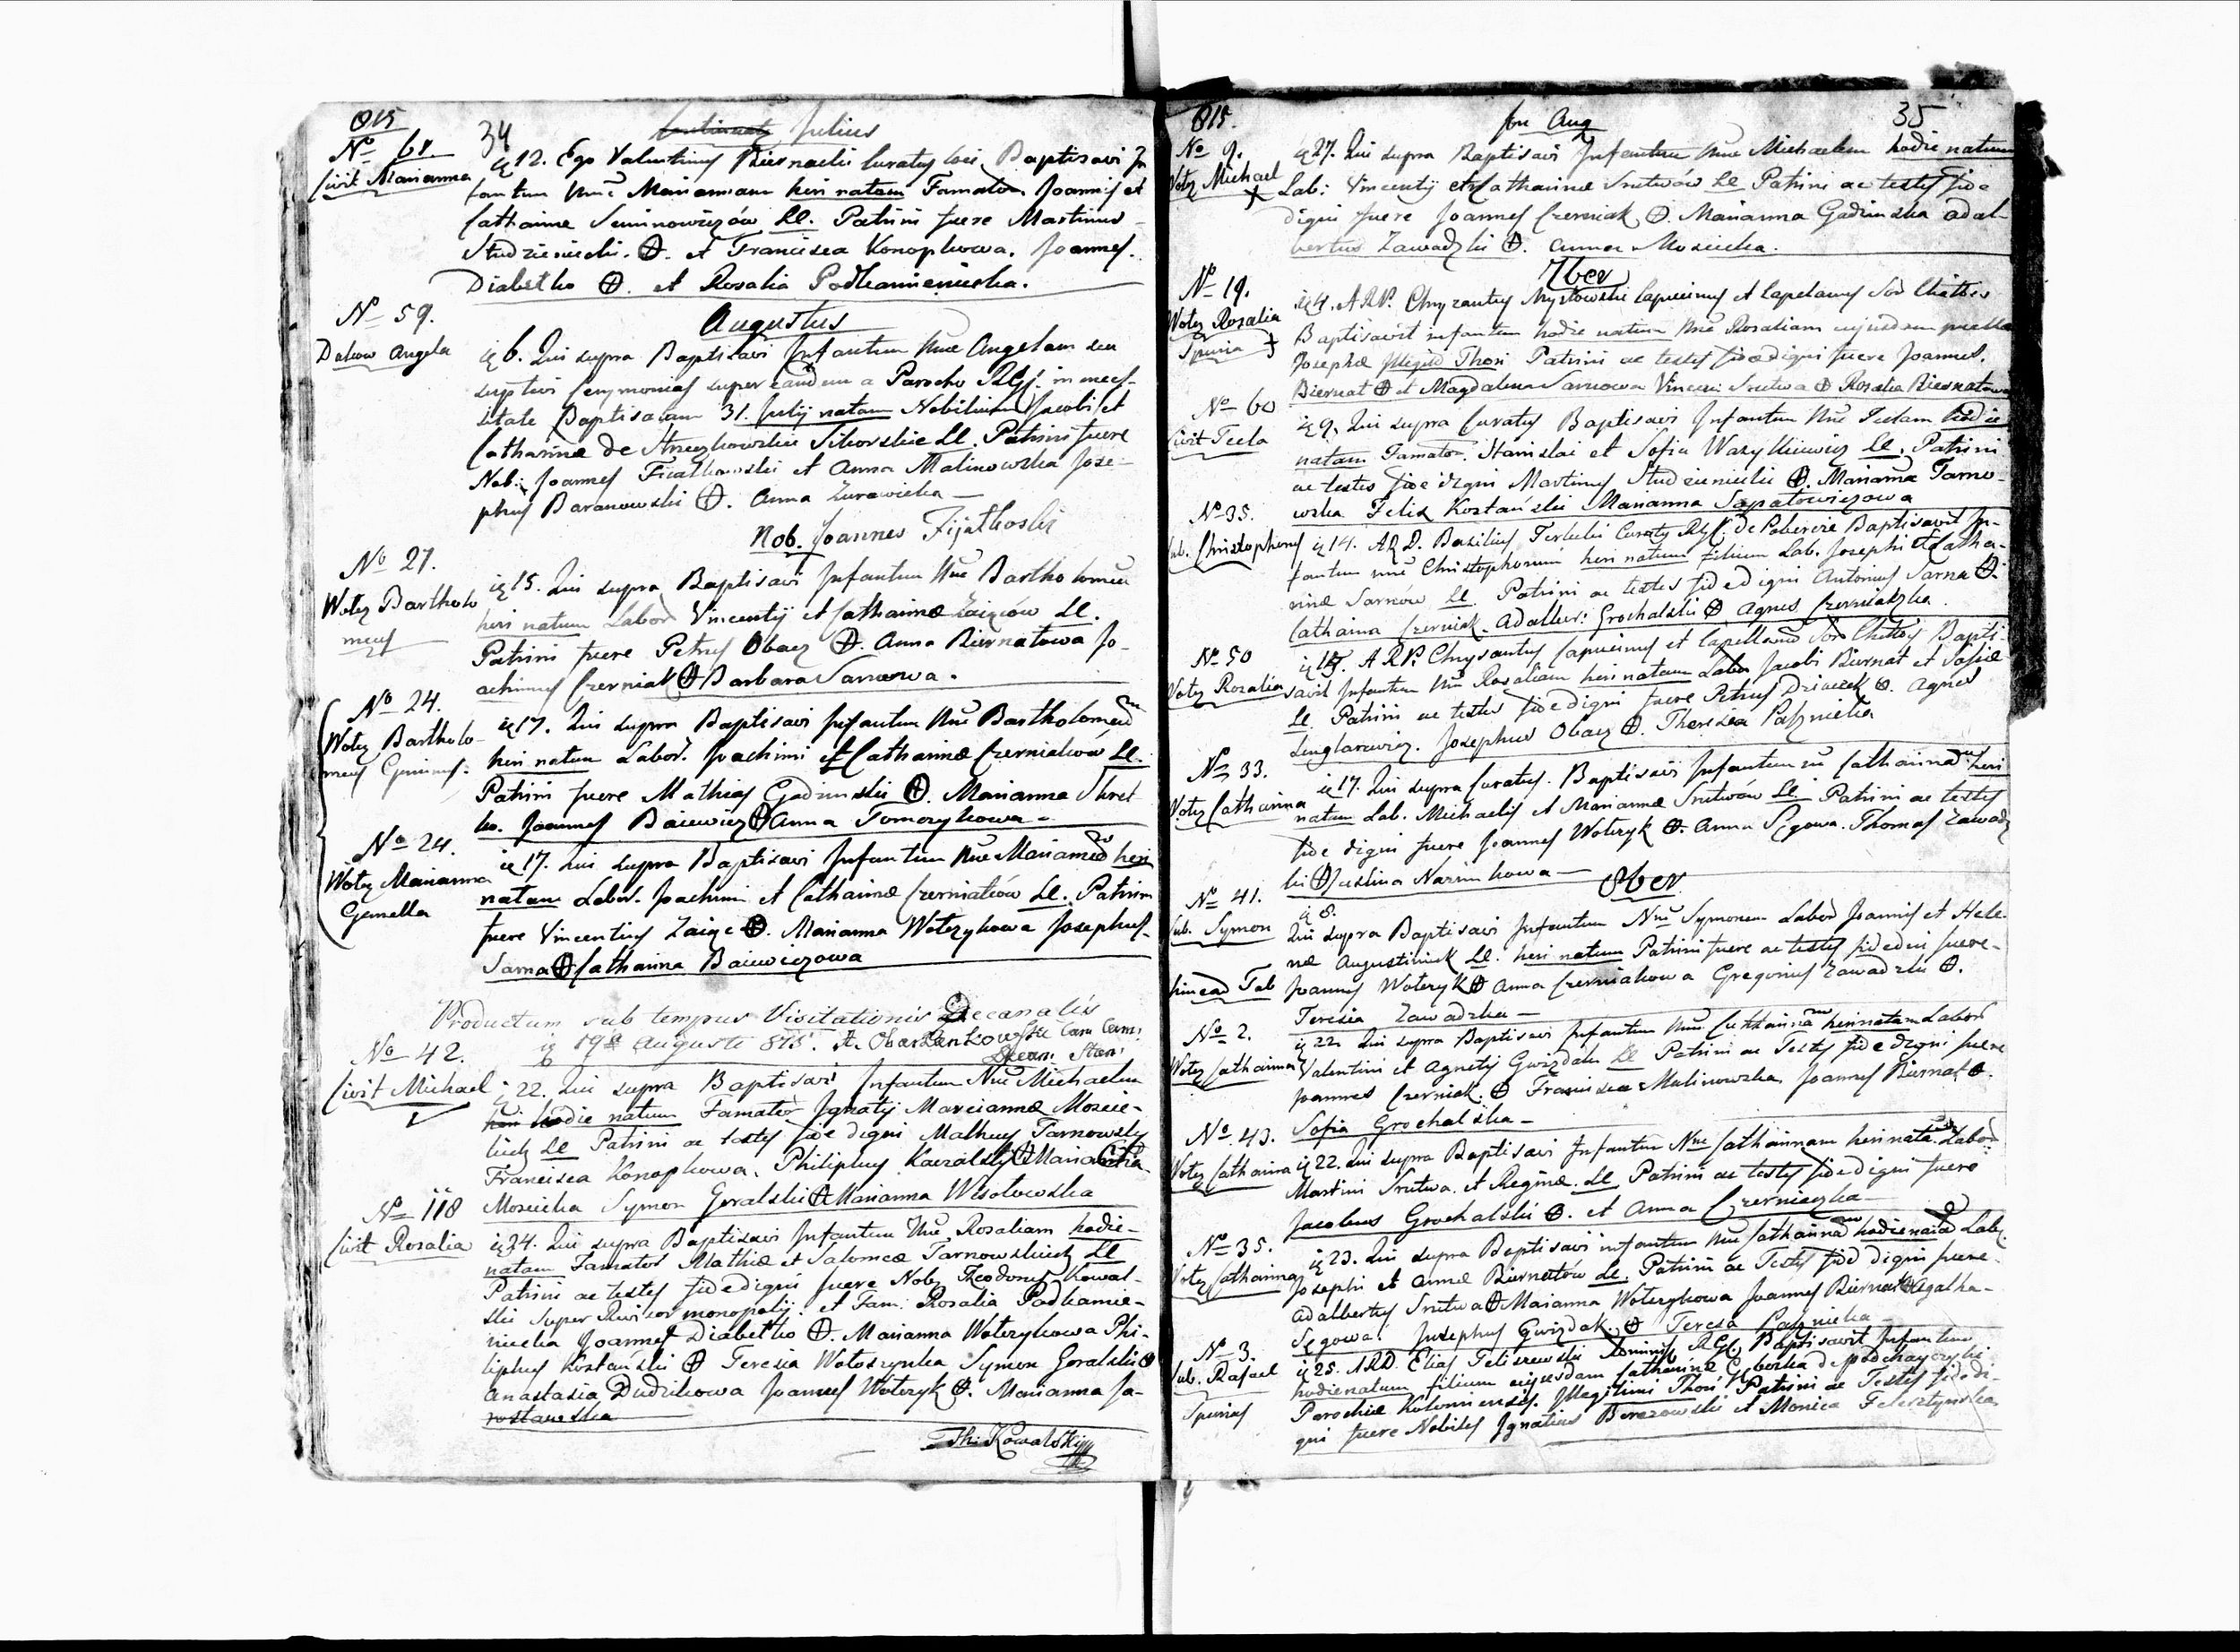 815
34
Julius
No 61.
Civit Marianna
ię 12. Ego Valentinus Biernacki Curatus loci Baptisavi In
fantem Nne Mariannam heri natam Famator Joannis et
Catharinae Seminowiczów LL. Patrini fuere Martinus
Studzieniecki. ⊕. et Francisca Konopkowa. Joannes.
Diabełko ⊕. et Rosalia Podkamieniecka.
No 59.
Dakow Angela
Augustus
ię 6. Qui supra Baptisavi Infantem Nne Angelam seu
supplevi Cerymonias super eandem a Parocho RLG. in neces-
sitate Baptisatam 31. Julij natam Nobilium Jacobi et
Catharinae de Strzyzkowskie Sikorskie LL. Patrini fuere
Nob: Joannes Fiałkowski et Anna Malinowska Jose-
phus Baranowski ⊕. Anna Zurawicka
Nob. Joannes Fijałkoski
No 27.
Wotez Bartholo
meus
ię 15. Qui supra Baptisavi Infantem Nne Bartholomeu
heri natum Labor Vincentij et Catharinae Zaięców LL.
Patrini fuere Petrus Obacz ⊕. Anna Biernatowa Jo-
achimus Czerniak ⊕ Barbara Sarnowa.
No 24.
Wotez Bartholo-
meus Geminus.
ię 17. Qui supra Baptisavi Infantem Nne Bartholomeum
heri natum Labor. Joachimi et Catharinae Czerniaków LL.
Patrini fuere Mathias Gadzinski ⊕. Marianna Skret
ko. Joannes Baiewicz ⊕ Anna Tomczykowa
No 24.
Wotez Marianna
Gemella
ię 17. Qui supra Baptisavi Infantem Nne Mariannam heri
natam Labor. Joachimi et Catharinae Czerniaków LL. Patrini
fuere Vincentius Zaięc ⊕. Marianna Woterykowa Josephus
Sarna ⊕ Catharina Baiewiczowa
Productum sub tempus Visitationis Decanalis
ię 19a Augusti 815.
No 42.
Civit Michael
ię 22. Qui supra Baptisavi Infantem Nne Michaelem
hodie natum Famator Ignatij Marcianae Moscic-
kich LL Patrini ac testes fide digni Matheus Tarnowsky
Francisca Konopkowa. Philiphus Kaczalsky ⊕
Moscicka Symon Goralski ⊕ Marianna Wesołowska
No 118
Civit Rosalia
ię 24. Qui supra Baptisavi Infantem Nne Rosaliam hodie
natam Famator Mathiae et Salomeae Tarnowskich LL
Patrini ac testes fide digni fuere Nobes Theodorus Kowal-
ski Super Revisor monopolij. et Fam: Rosalia Podkamie-
niecka Joannes Diabełko ⊕. Marianna Woterykowa Phi-
liphus Kostański ⊕ Teresia Wołoszynka Symon Goralski ⊕
Anastasia Dudzikowa Joannes Woteryk ⊕. Marianna Ja-
rostawska
Th: Kowalski
815.
pro Aug
35
No 9.
Wotez Michael
ię 27. Qui supra Baptisavi Infantem Nne Michaelem hodie natum
Lab: Vincentij et Catharinae Srutwów LL Patrini ac testes fide
digni fuere Joannes Czerniak ⊕. Marianna Gadzinska Adal-
bertus Zawadzki ⊕. Anna Moscicka.
7ber
No 19.
Wotez Rosalia
Spuria
ię 4. A.R.P. Chryzantus Mysłowski Capucinus et Capelanus
Baptisavit infantem hodie natam Nne Rosaliam cujusdam puella
Josepha Illegit Thori Patrini ac testes fide digni fuere Joannes.
Biernat ⊕ et Magdalena Sarnowa Vincenti Srutwa ⊕ Rosalia Biernatowa
No 60
Civit Tecla
ię 9. Qui supra Curatus Baptisavi Infantem Nne Teclam hodie
natam Famator. Stanislai et Sofia Wazylkiewicz LL. Patrini
ac testes fide digni Martinus Studzieniecki ⊕. Marianna Tarno-
wska Felix Kostański Marianna Sapatowiczowa
No 35.
Sub. Christophorus
ię 14. A.R.D. Basilius Terlecki Curatus RLG. de Pobereze Baptisavit In-
fantem nne Christophorum heri natum filium Lab. Josephi et Catha-
rinae Sarnów LL. Patrini ac testes fide digni Antonius Sarna ⊕.
Catharina Czerniak. Adalber: Grochalski ⊕ Agnes Czerniaczka.
No 50
Wotez Rozalia
ię 15. A.R.P. Chrysantus Capucinus et Capellanus Bapti-
savit Infantem Nne Rosaliam heri natam Labor Jacobi Biernat et Sofiae
LL. Patrini ac testes fide digni fuere Petrus Dziacek ⊕. Agnes
Josephus Obacz ⊕. Theresia Pasznicka
No 33.
Wotez Catharina
ię 17. Qui supra Curatus. Baptisavi Infantem nne Catharinam heri
natam Lab. Michaelis et Marianae Srutwów LL. Patrini ac testes
fide digni fuere Joannes Woteryk ⊕. Anna Sęgowa. Thomas Zawadz
ki ⊕ Justina Narinkowa
8ber
No 41.
Sub. Symon
ię 8.
Qui supra Baptisavi Infantem Nne Symonem Labor Joannis et Hele-
nae Augustiniak LL. heri natum Patrini fuere ac testes fide digni fuere
Joannes Woteryk ⊕ Anna Czerniakowa Gregorius Zawadzki ⊕.
Teresia Zawadzka
No 2.
Wotez Catharina
ię 22. Qui supra Baptisavi Infantem Nne Catharinam heri natam Labor
Valentini et Agnetis Gwizdak LL Patrini ac Testes fide digni fuere
Joannes Czerniak. ⊕ Francisca Malinowska Joannes Biernat ⊕.
Sofia Grochalska
No 43.
Wotez Catharina
ię 22. Qui supra Baptisavi Infantem Nne Catharinnam heri natam Labor
Martini Srutwa. et Reginae. LL Patrini ac testes fide digni fuere
Jacobus Grochalski ⊕. et Anna Czerniaczka
No 35.
Wotez Catharina
ię 23. Qui supra Baptisavi infantem Nne Catharinam hodie natam Lab.
Josephi et Annae Biernatów LL. Patrini ac Testes fide digni fuere
Adalbertus Srutwa ⊕ Marianna Woterykowa Joannes Biernat ⊕ Agatha
Sęgowa. Josephus Gwizdak. ⊕ Teresa Pasznicka
No 3.
Sub. Rafael
Spurius
ię 25. A.R.D. Elias Teliszewski RGL Baptisavit Infantem
hodie natum filium cujusdam Catharinae
Parochiae Illegitimi Thori Patrini ac Testes fide di-
gni fuere Nobiles Ignatius Berezowski et Monica Felsztynska